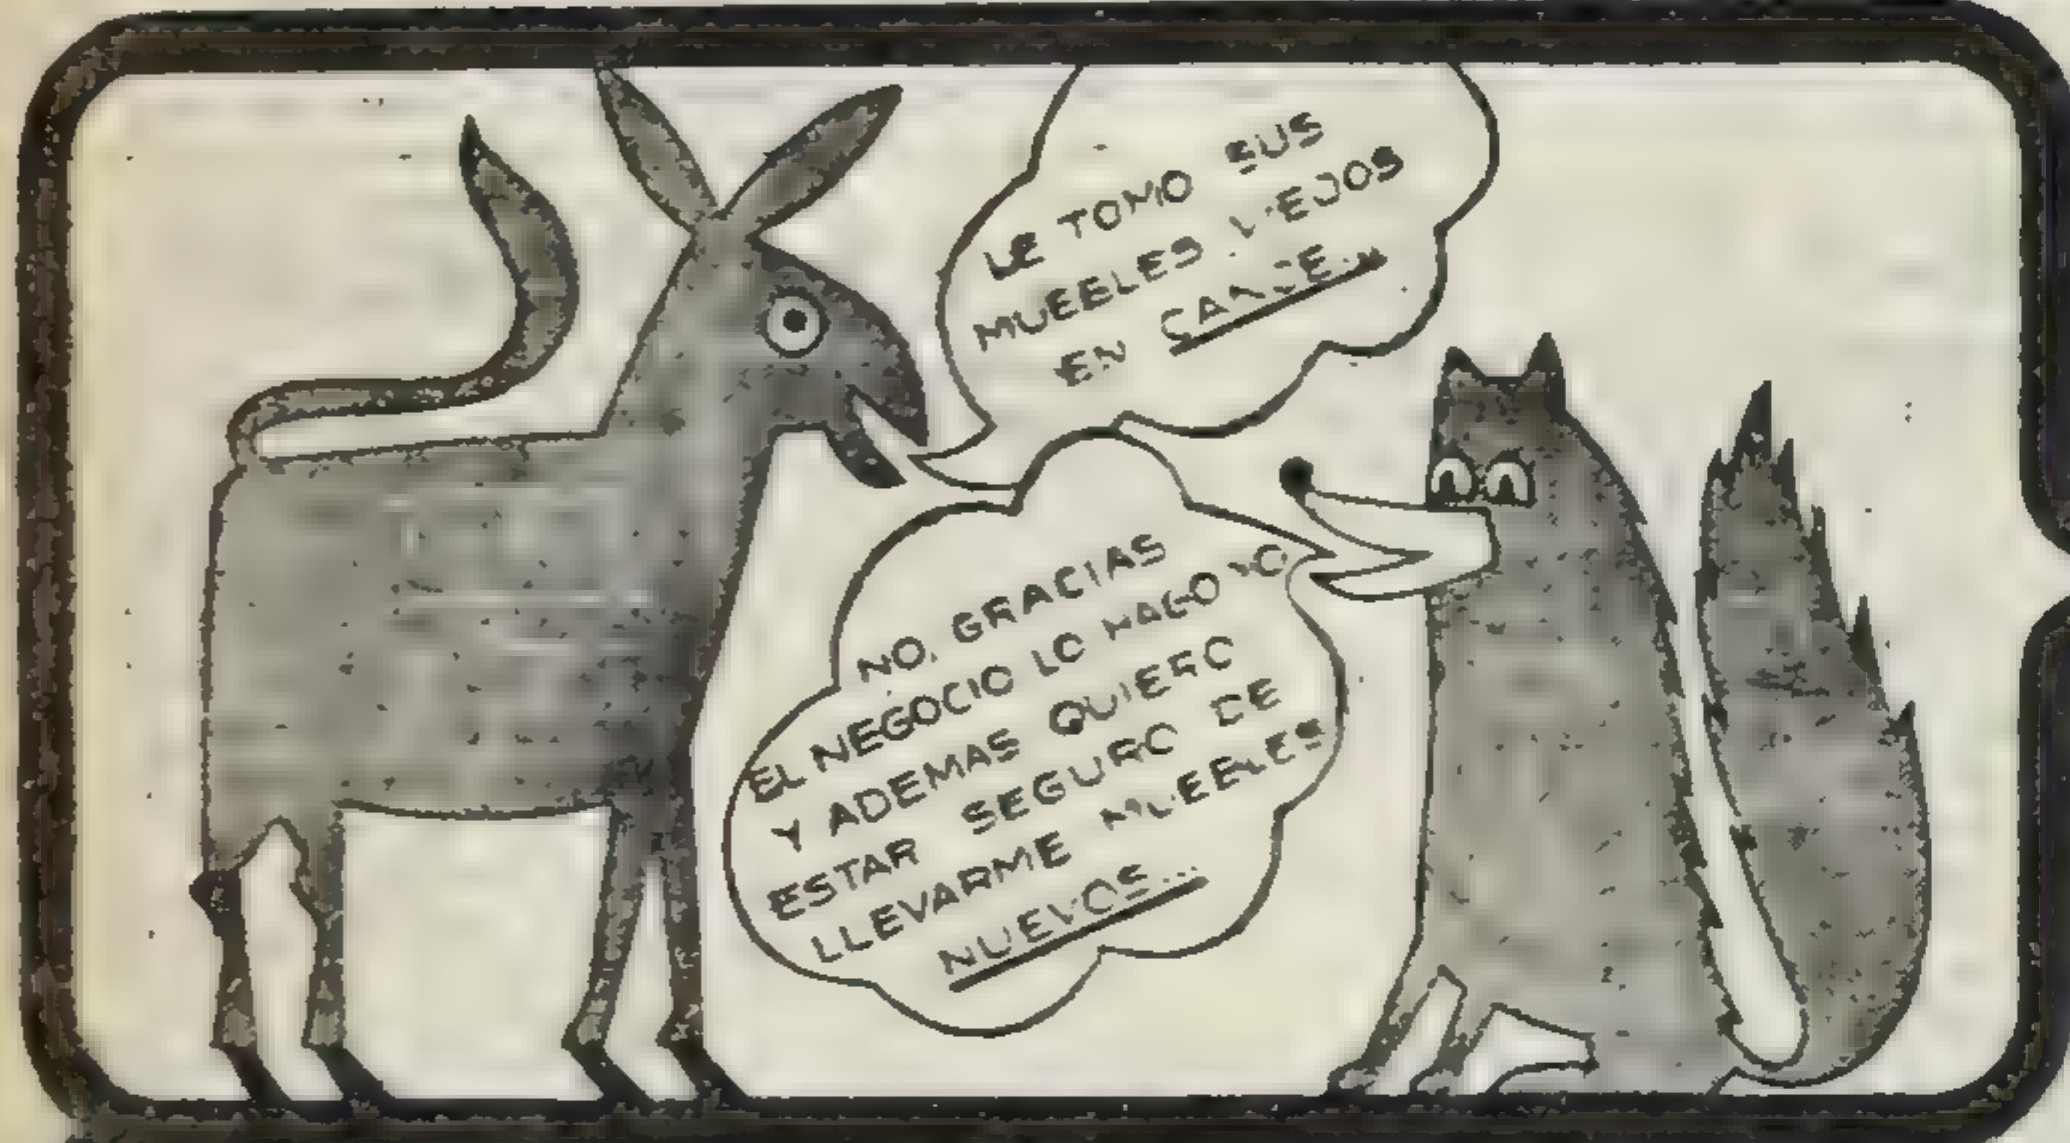 LE TOMO SUS
MUEBLES VIEJOS
EN CANJE...
NO, GRACIAS
EL NEGOCIO LO HAGO YO
Y ADEMAS QUIERO
ESTAR SEGURO DE
LLEVARME MUEBLES
NUEVOS...